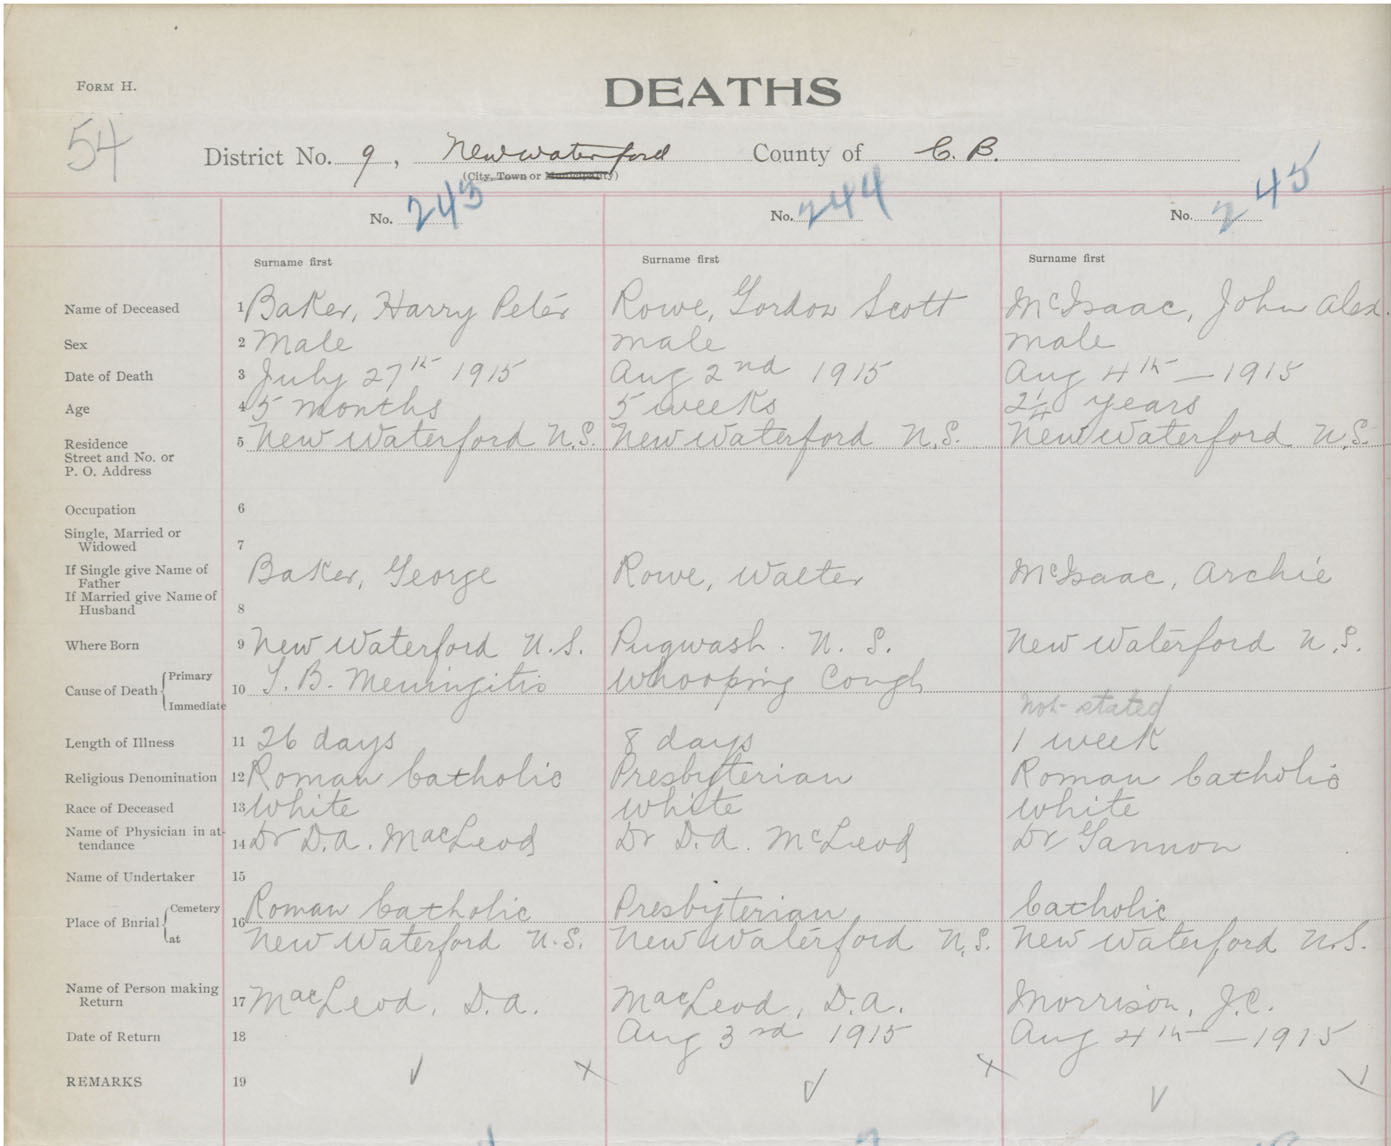 FORM H.
DEATHS
54
District No. 9, New Waterford County of C. B.
(City, Town or Municipality)
No. 243 No. 244 No. 245
Surname first Surname first Surname first
Name of Deceased 1 Baker, Harry Peter Rowe, Gordon Scott McIsaac, John Alex.
Sex 2 Male male male
Date of Death 3 July 27th 1915 Aug 2nd 1915 Aug 4th — 1915
Age 4 5 months 5 weeks 2 1/4 years
Residence 5 New Waterford N.S. New Waterford N.S. New Waterford N.S.
Street and No. or
P. O. Address
Occupation 6
Single, Married or
Widowed 7
If Single give Name of Baker, George Rowe, Walter McIsaac, Archie
Father
If Married give Name of
Husband 8
Where Born 9 New Waterford N.S. Pugwash. N. S. New Waterford N.S.
Primary
Cause of Death 10 T. B. Meningitis Whooping Cough
Immediate Not stated
Length of Illness 11 26 days 8 days 1 week
Religious Denomination 12 Roman Catholic Presbyterian Roman Catholic
Race of Deceased 13 White white white
Name of Physician in at-
tendance 14 Dr D.A. MacLeod Dr D.A. McLeod Dr Gannon
Name of Undertaker 15
Cemetery Roman Catholic Presbyterian Catholic
Place of Burial 16
at New Waterford N.S. New Waterford N.S. New Waterford N.S.
Name of Person making
Return 17 MacLeod, D.A. MacLeod, D.A. Morrison, J.C.
Date of Return 18 Aug 3rd 1915 Aug 4th — 1915
REMARKS 19